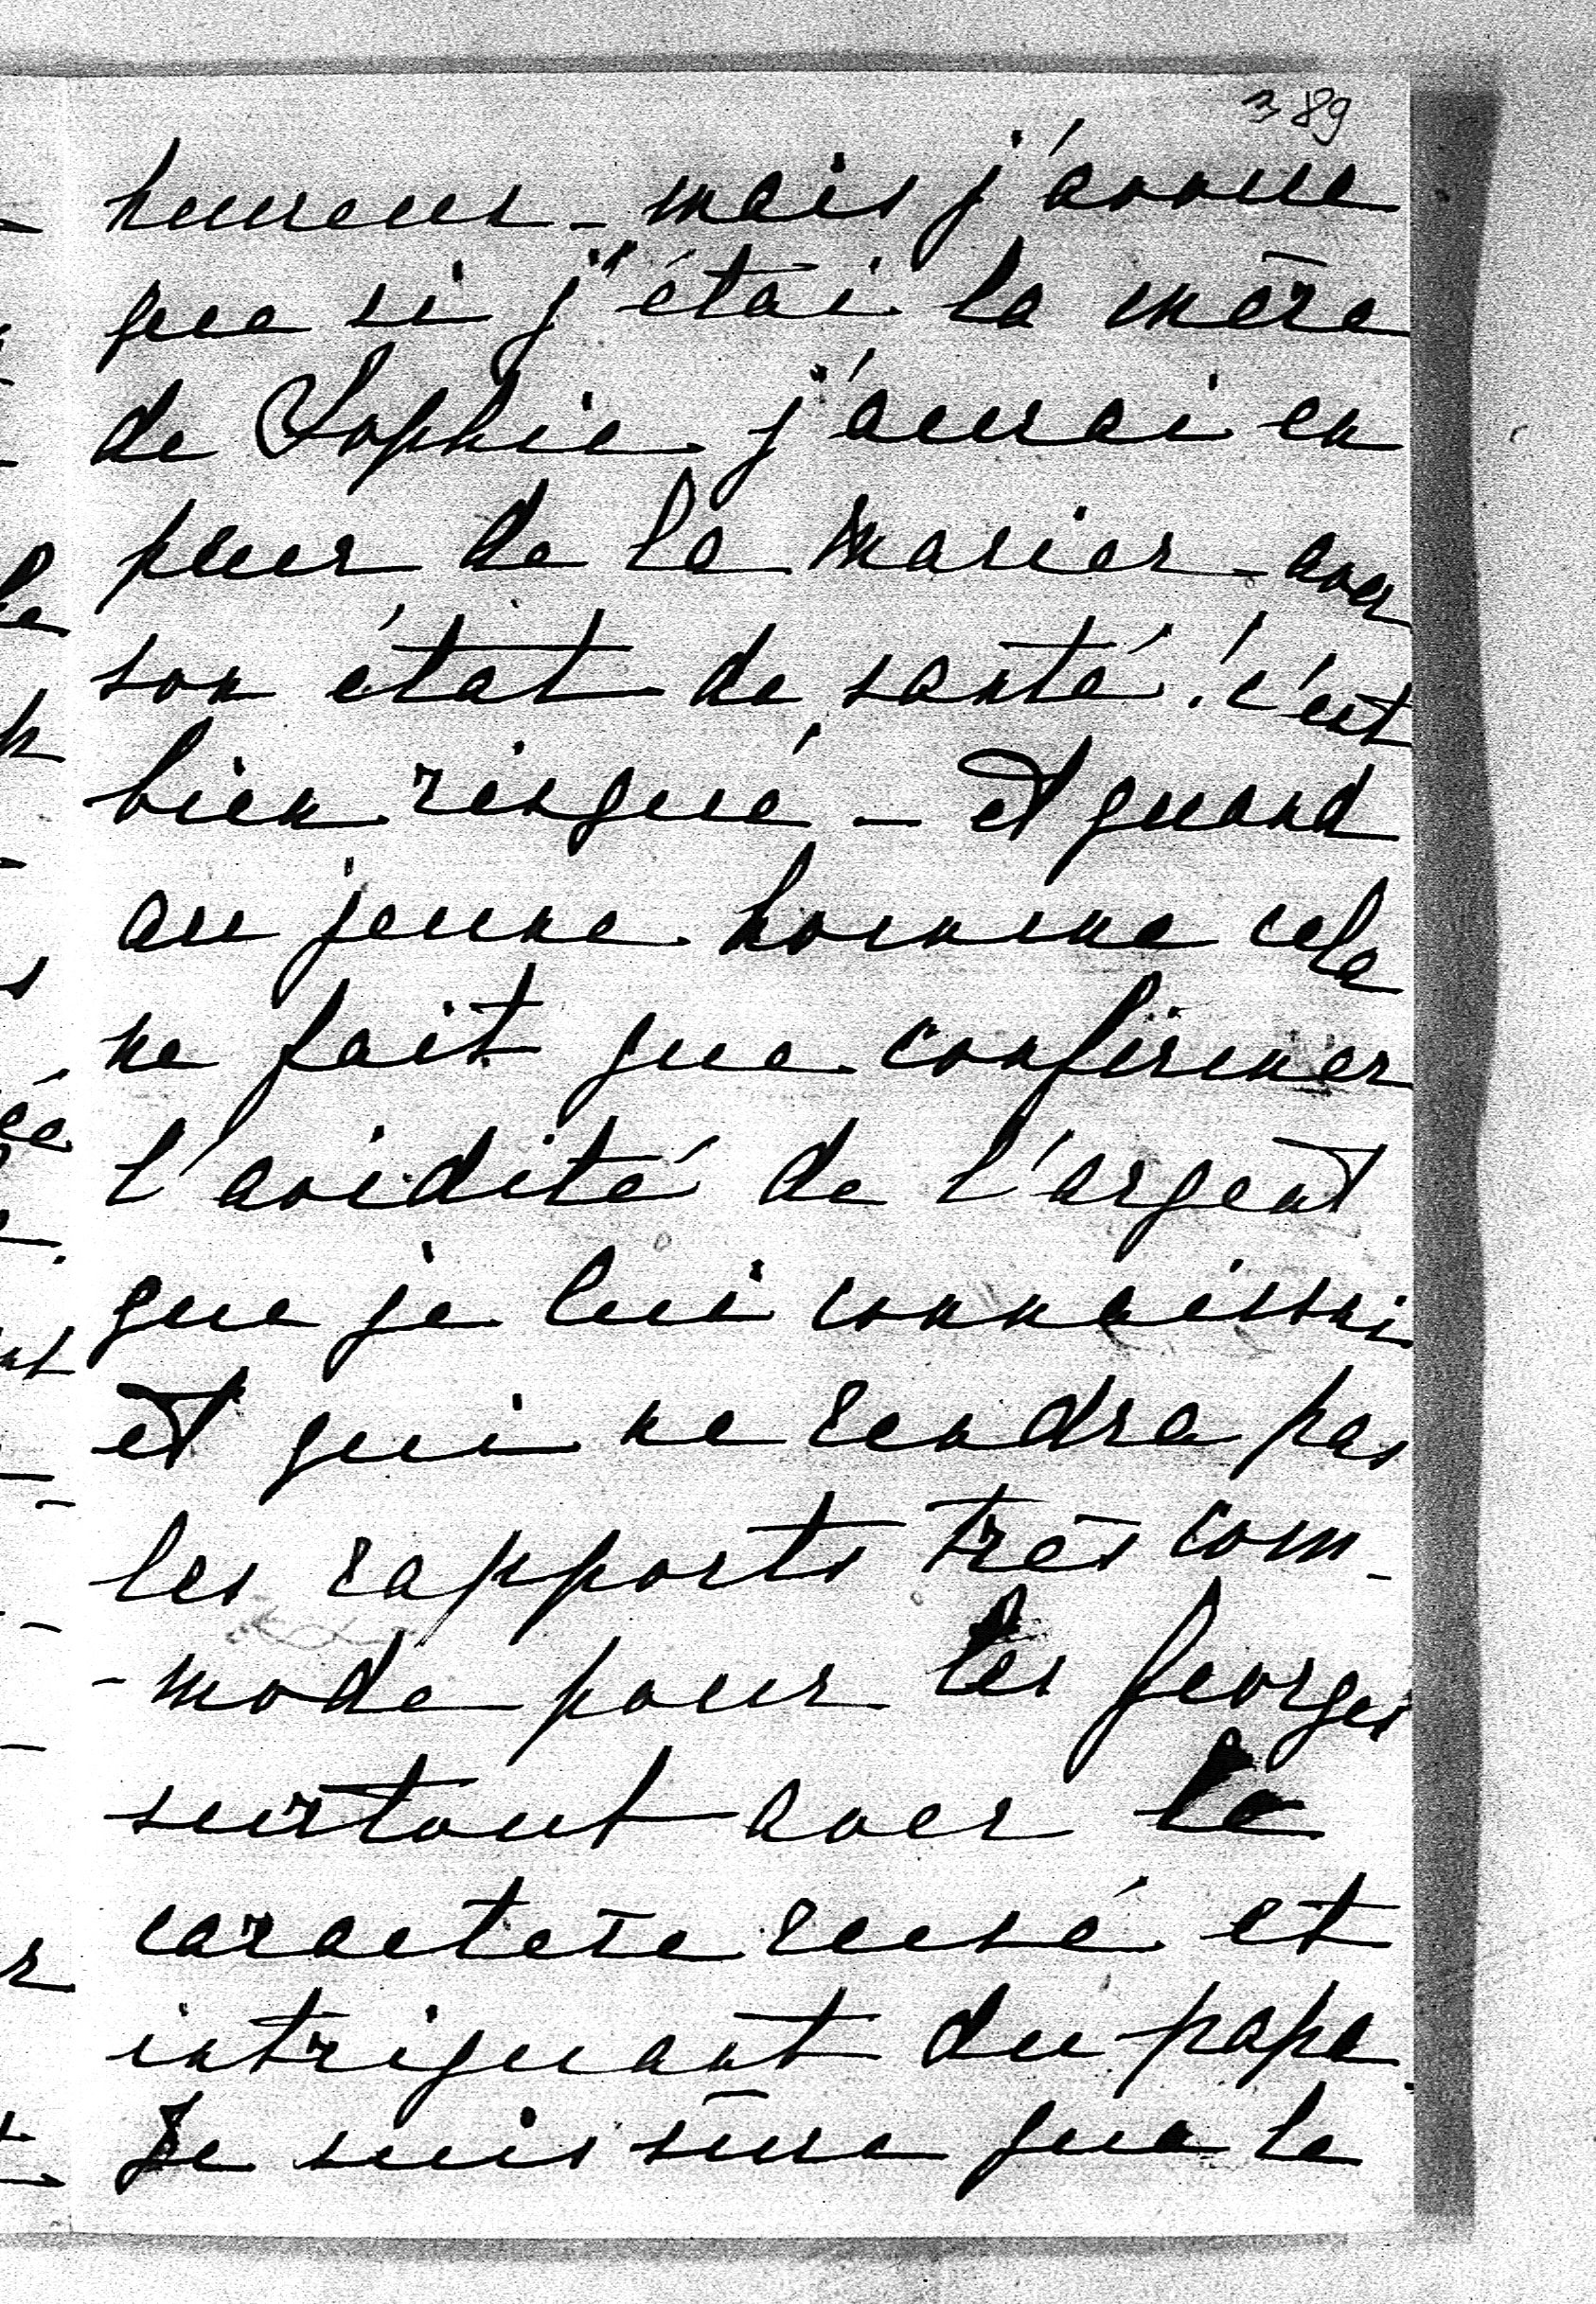 389
heureux - mais j'avoue
que si j'étai la mère
de Sophie j'aurai eu
peur de la marier - avec
son état de santé! c'est
bien risqué - et quand
au jeune homme cela
ne fait que confirmer
l'avidité de l'argent
que je lui connaissai
et qui ne rendra pas
les rapports très com-
-mode pour les Georges
surtout avec le
caractère rusé et
intriguant du papa.
Je suis sûre que la